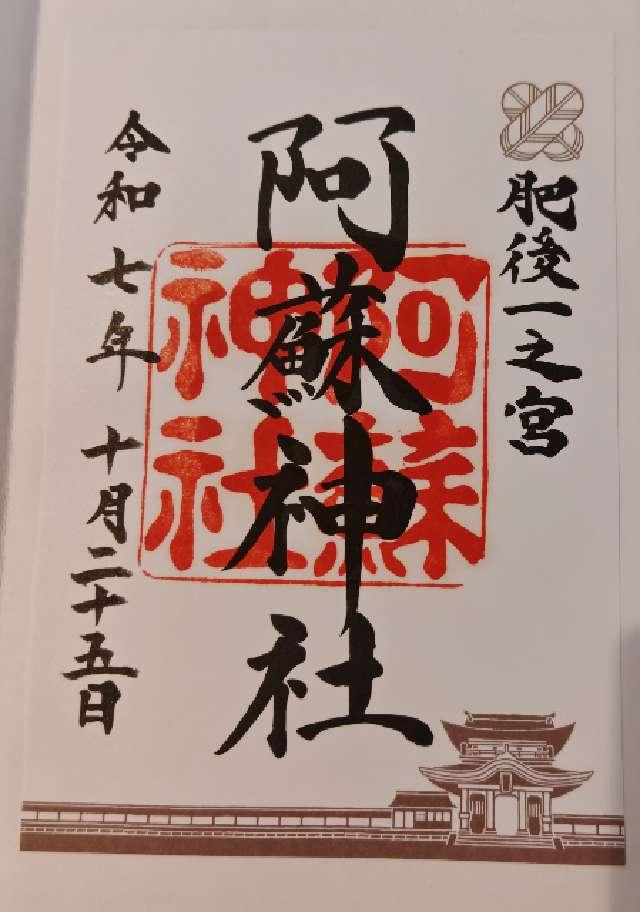 肥後一之宮
阿蘇神社
阿蘇神社
令和七年十月二十五日